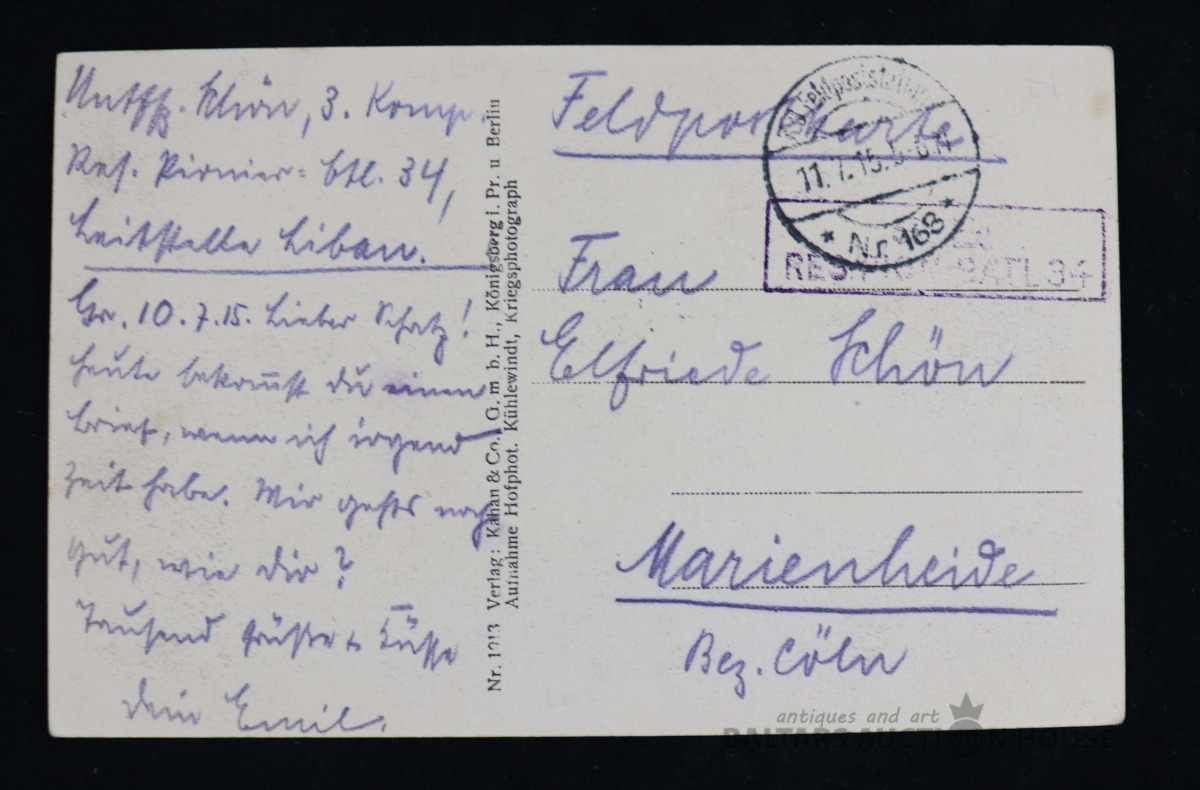 Untffz. Schön, 3. Komp.
Res. Pionier= Btl. 34,
Leitstelle Libau.
Gr. 10.7.15. Lieber Schatz!
Heute bekom̅st Du einen
Brief, wenn ich irgend
Zeit habe. Mir gehts noch
gut, wie Dir?
Tausend Grüße + Küsse
Dein Emil.
Nr. 1913 Verlag: Kahan & Co., G. m b. H., Königsberg i. Pr. u Berlin
Aufnahme Hofphot. Kühlewindt, Kriegsphotograph
Feldpostkarte
Feldpoststation
11.7.15.5-6.N
* Nr. 168 *
RES. BATL 34
Frau
Elfriede Schön
Marienheide
Bez. Cöln
antiques and art
BALTARS AUCTION HOUSE